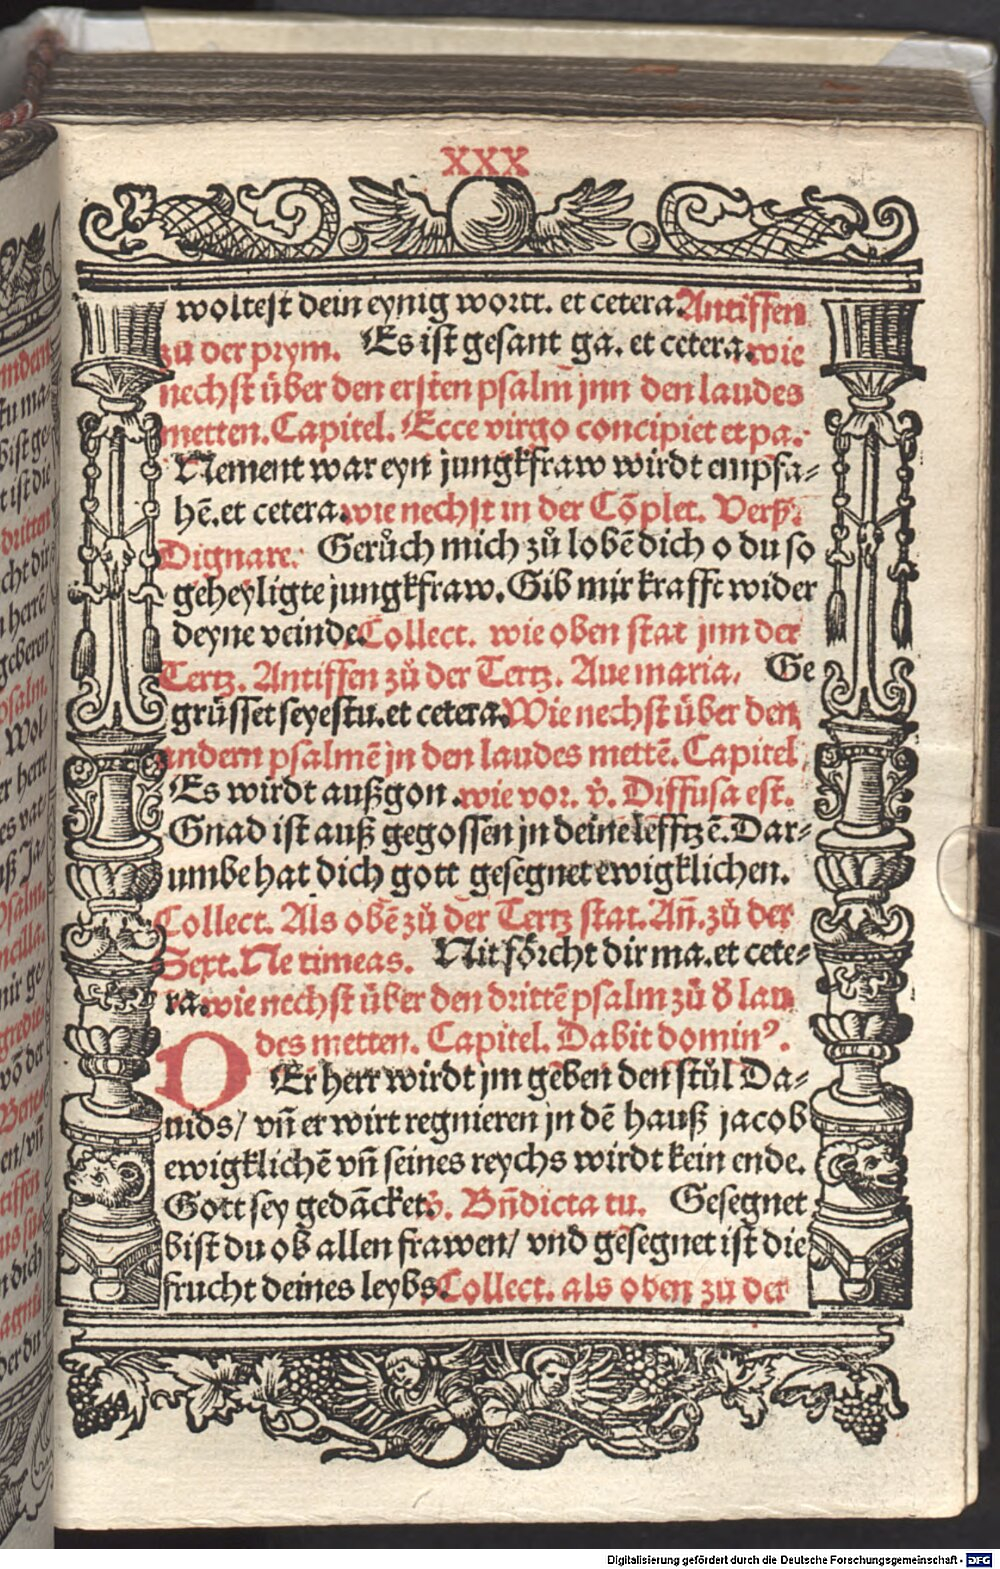 XXX
woltest dein eynig wortt. et cetera. Antiffen
zů der prym. Es ist gesant ga. et cetera. wie
nechst über den ersten psalm jnn den laudes
metten. Capitel. Ecce virgo concipiet et pa.
Nement war eyn jungkfraw wirdt empfa-
hē. et cetera. wie nechst in der Cōplet. Verß.
Dignare. Gerůch mich zů lobē dich o du so
geheyligte jungkfraw. Gib mir krafft wider
deyne veinde. Collect. wie oben stat jnn der
Tertz. Antiffen zů der Tertz. Aue maria. Ge
grüsset seyestu. et cetera. Wie nechst über den
andern psalmē jn den laudes mettē. Capitel
Es wirdt außgon. wie vor. v̊. Diffusa est.
Gnad ist auß gegossen jn deine lefftzē. Dar-
umbe hat dich gott gesegnet ewigklichen.
Collect. Als obē zů der Tertz stat. Añ. zů der
Sext. Ne timeas. Nit förcht dir ma. et cete-
ra. wie nechst über den drittē psalm zů d̕ lau
des metten. Capitel. Dabit dominꝰ.
DEr herr wirdt jm geben den stůl Da-
uids/ vñ er wirt regnieren jn dē hauß jacob
ewigklichē vñ seines reychs wirdt kein ende.
Gott sey gedācket. v̊. Bñdicta tu. Gesegnet
bist du ob allen frawen/ vnd gesegnet ist die
frucht deines leybs. Collect. als oben zu der
Digitalisierung gefördert durch die Deutsche Forschungsgemeinschaft - DFG